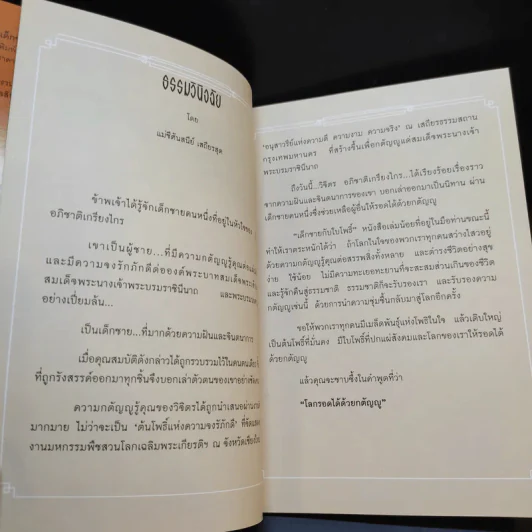 ธรรมวินิจฉัย
โดย
แม่ชีศันสนีย์ เสถียรสุต
ข้าพเจ้าได้รู้จักเด็กชายคนหนึ่งที่อยู่ในหัวใจของ
อภิชาติเกรียงไกร
เขาเป็นผู้ชาย...ที่มีความกตัญญูรู้คุณต่อ
และมีความจงรักภักดีต่อองค์พระบาทสมเด็จพระ
สมเด็จพระนางเจ้าพระบรมราชินีนาถ และพระบรม
อย่างเปี่ยมล้น...
เป็นเด็กชาย...ที่มากด้วยความฝันและจินตนาการ
เมื่อคุณสมบัติดังกล่าวได้ถูกรวบรวมไว้ในคนคนเดียว
ที่ถูกรังสรรค์ออกมาทุกชิ้นจึงบอกเล่าตัวตนของเขาอย่าง
ความกตัญญูรู้คุณของวิจิตรได้ถูกนำเสนอผ่าน
มากมาย ไม่ว่าจะเป็น ‘ต้นโพธิ์แห่งความจงรักภักดี’ ที่จัดแสดง
งานมหกรรมพืชสวนโลกเฉลิมพระเกียรติฯ ณ จังหวัดเชียงใหม่
‘อนุสาวรีย์แห่งความดี ความงาม ความจริง’ ณ เสถียรธรรมสถาน
กรุงเทพมหานคร ที่สร้างขึ้นเพื่อกตัญญูแด่สมเด็จพระนางเจ้า
พระบรมราชินีนาถ
ถึงวันนี้...วิจิตร อภิชาติเกรียงไกร...ได้เรียงร้อยเรื่องราว
จากความฝันและจินตนาการของเขา บอกเล่าออกมาเป็นนิทาน ผ่าน
เด็กชายคนหนึ่งซึ่งช่วยเหลือผู้อื่นให้รอดได้ด้วยกตัญญู
“เด็กชายกับใบโพธิ์” หนังสือเล่มน้อยที่อยู่ในมือท่านขณะนี้
ทำให้เราตระหนักได้ว่า ถ้าโลกในใจของพวกเราทุกคนสว่างไสวอยู่
ด้วยความกตัญญูรู้คุณต่อสรรพสิ่งทั้งหลาย และดำรงชีวิตอย่างสุข
ง่าย ใช้น้อย ไม่มีความทะเยอทะยานที่จะสะสมส่วนเกินของชีวิต
และรู้จักคืนสู่ธรรมชาติ ธรรมชาติก็จะรับรองเรา และรับรองความ
กตัญญูเช่นนี้ ด้วยการนำความชุ่มชื้นกลับมาสู่โลกอีกครั้ง
ขอให้พวกเราทุกคนมีเมล็ดพันธุ์แห่งโพธิในใจ แล้วเติบใหญ่
เป็นต้นโพธิ์ที่มั่นคง มีใบโพธิ์ที่ปกแผ่สังคมและโลกของเราให้รอดได้
ด้วยกตัญญู
แล้วคุณจะซาบซึ้งในคำพูดที่ว่า
“โลกรอดได้ด้วยกตัญญู”